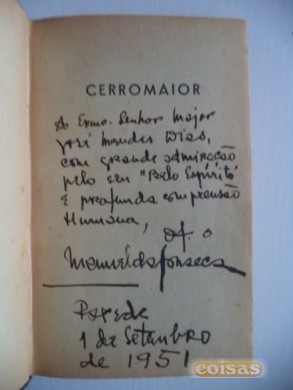 CERROMAIOR
Ao Exmo. Senhor Major
José Mendes Dias,
com grande admiração
pelo seu "Belo Espírito"
e profunda compreensão
Humana,
of. o
Manuel da Fonseca
Parede
1 de Setembro
de 1951
coisas